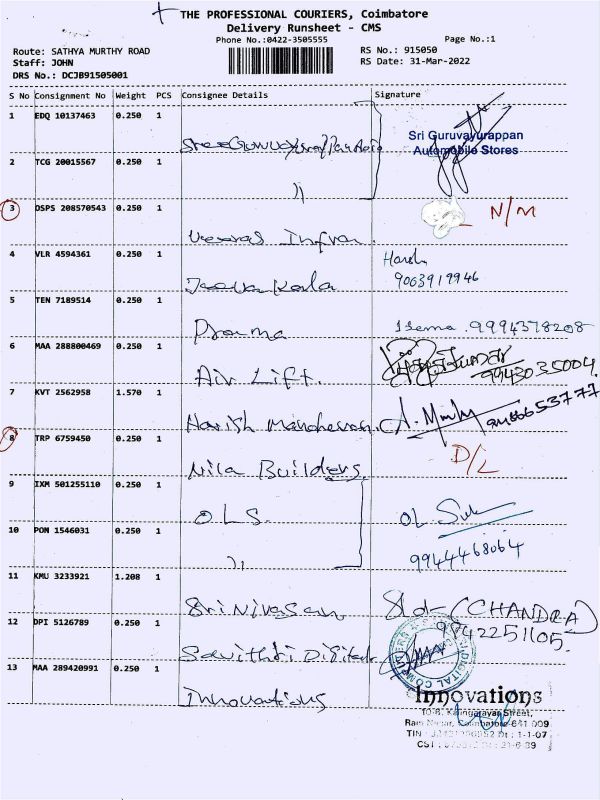 THE PROFESSIONAL COURIERS, Coimbatore
Delivery Runsheet - CMS
Phone No.:0422-3505555
Page No.:1
Route: SATHYA MURTHY ROAD
RS No.: 915050
Staff: JOHN
RS Date: 31-Mar-2022
DRS No.: DCJB91505001
S No Consignment No Weight PCS Consignee Details Signature
1 EDQ 10137463 0.250 1
Sri Guruvayurappan
Automobile Stores
2 TCG 20015567 0.250 1
))
3 DSPS 208570543 0.250 1 N/M
Veeras Infra.
4 VLR 4594361 0.250 1
Harsh
9003919946
Jeeva Kala
5 TEN 7189514 0.250 1
9994378208
6 MAA 288800469 0.250 1
9943035004.
Air Lift.
7 KVT 2562958 1.570 1
Harish Manoharan.
8 TRP 6759450 0.250 1 D/L
Nila Builders.
9 IXM 501255110 0.250 1
OLS.
10 PON 1546031 0.250 1
9944468064
))
11 KMU 3233921 1.208 1
Srinivasan
(CHANDRA)
9842251105.
12 DPI 5126789 0.250 1
Savithri Digital
13 MAA 289420991 0.250 1
Innovations
Innovations
Ram Nagar, Coimbatore-641 009